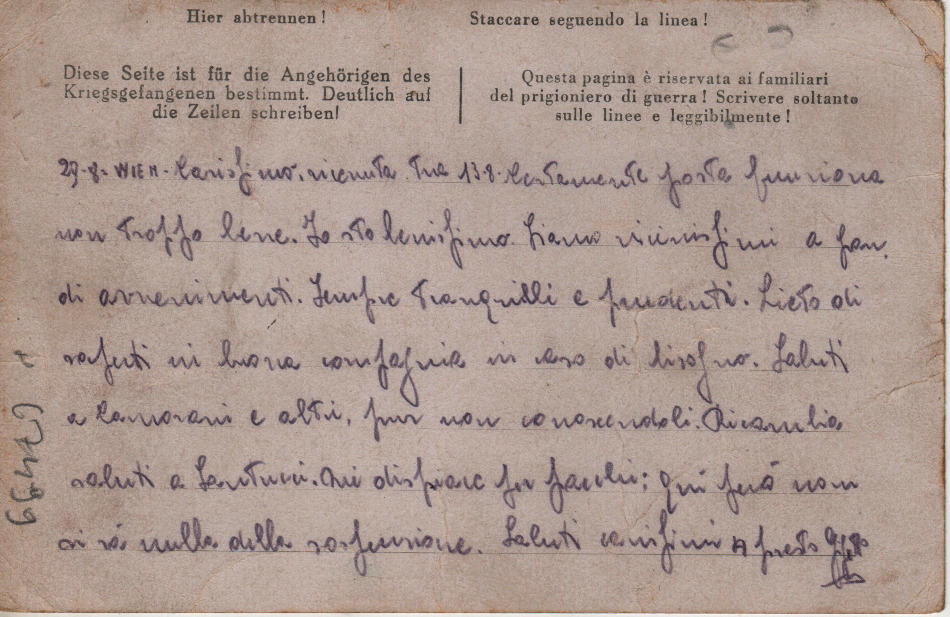 Hier abtrennen!
Staccare seguendo la linea!
Diese Seite ist für die Angehörigen des
Kriegsgefangenen bestimmt. Deutlich auf
die Zeilen schreiben!
Questa pagina è riservata ai familiari
del prigioniero di guerra! Scrivere soltanto
sulle linee e leggibilmente!
29-8- WIEN - Carissimo, ricevuta tua 13-8. Certamente posta funziona
non troppo bene. Io sto benissimo. Siamo vicinissimi a gran.
di avvenimenti. Sempre tranquilli e prudenti. Lieto di
saperti in buona compagnia in caso di bisogno. Saluti
a Zamorani e altri, pur non conoscendoli. Ricambia
saluti a Santucci. Mi dispiace per; qui però non
si sà nulla della sospensione. Saluti carissimi A presto